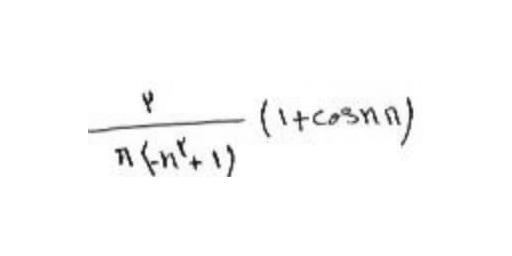 ۲/(π(-n²+1)) (1+cosnπ)